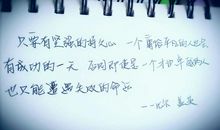 只要有坚强的持久心 一个庸俗平凡的人也会
有成功的一天 否则即使是一个才识卓越的人
也只能遭遇失败的命运
——比尔 盖茨